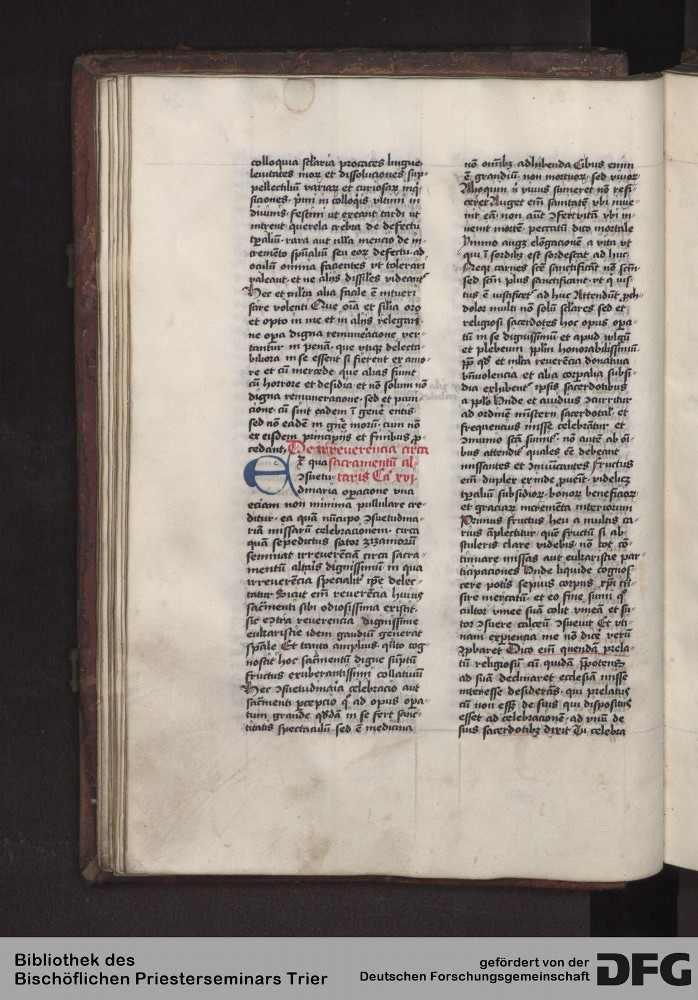 colloquia sclaria procaces lingue
levitates mor et dissoluciones sup-
pellectiliū variar et curiosar inq-
siciones. pmi in colloqiis vltimi in
diuinis. festini vt exeant tardi vt
intrent querela crebra de defectu
tpaliū. rara aut nulla mencio de in-
cremēto spūaliū seu eor defectu. ad
oculū omnia facientes vt tolerari
valeant. et ne aliis dissiles videant
Hec et mlta alia facile ē intueri
scire volenti Que oīa et silia oro
et opto in me et in aliis relegari.
ne opa digna remuneracione ver-
tantur in penā. que vtiqz delecta-
biliora in se essent si fierent ex amo-
re et cū mercede. que alias fiunt
cū horrore et desidia et nō solum nō
digna remuneracione. sed et puni-
cione. cū sint eadem ī genē entis
sed nō eadē in gnē morū. cum non
ex eisdem principiis et finibus p-
cedant. De irreuerencia circa
Ex qua sacramentū al-
ɔsuetu- taris Ca xvi.
dinaria opacione vna
eciam non minima pullulare cre-
ditur. ea quā nūcupo ɔsuetudina-
riā missarū celebracionem. circa
quā sepedictus sator zizaniorū
seminat irreuerēciā circa sacra-
mentū altaris dignissimū in qua
irreuerēcia specialit ipe delec-
tatur Sicut em reuerēcia huius
sacmenti sibi odiosissima existit.
sic ecōtra reuerencia dignissime
eukaristie idem gaudiū generat
spāle Et tanto amplius. qūto cog
noscit hoc sacmentū digne suptū
fructus exuberantissimi collatiuū
Hec ɔsuetudinaria celebracio aut
sacmenti pcepcio q ad opus opa-
tum grande qdā in se fert sanc-
titatis spectaculū. sed ē medicina
nō omībz adhibenda Cibus enim
ē grandiū. non mortuor. sed viuor
Alioquin ī viuus sumeret nō refi-
ceret Auget em sanitatē vbi inue-
nit eā. non aut ɔfert vitā vbi in-
uenit mortē. peccatū dico mortale
Ymmo auget elōgacionē a vita vt
qui ī sordibz est sordescat ad huc.
Neqz carnes scē sanctificāt nō scm.
sed scm plus sanctificant. vt q ius-
tus ē iustificet ad huc Attendūt. pch-
dolor multi nō solū sclares sed et
religiosi sacerdotes hoc opus opa-
tū in se dignissimū et apud wlgū
et plebeum pplm honorabilissimū.
p qd et mlta reuerēcia donatiua
bniuolencia et alia corpalia subsi-
dia exhibent ipsis sacerdotibus
a pplo Vnde et auidius ɔcurritur
ad ordinē mistern sacerdotal et
frequencius misse celebrātur et
ɔmunio scā sumit. no autē ab oi-
bus attendit quales eē debeant
missantes et ɔmunicantes Fructus
em duplex exinde puēit. videlicz
tpaliū subsidior. honor beneficior
et graciar incremēta interiorum
Primus fructus heu a multis ca-
rius āplectitur. que fructū si ab-
stuleris clare videbis nō tot cō-
tinuare missas aut eukaristie par-
ticipaciones Vnde liquide cognos-
cere potis sepius corpus xpi cū-
sire mercatū. et eo fine sumi. q
cultor vinee suā colit vineā et su-
tor ɔsuere calceū ɔsueuit Et vti-
nam expiencia me nō dicē verū
ɔpbaret Dico em quendā prela-
tū religiosū cū quidā ppotens
ad suā declinaret ecclesiā misse
interesse desiderās. qui prelatus
cū non esst de suis qui dispositus
esset ad celebracionē. ad vnū de
suis sacerdotibz dixit Tu celebra
Bibliothek des
Bischöflichen Priesterseminars Trier
gefördert von der
Deutschen Forschungsgemeinschaft
DFG